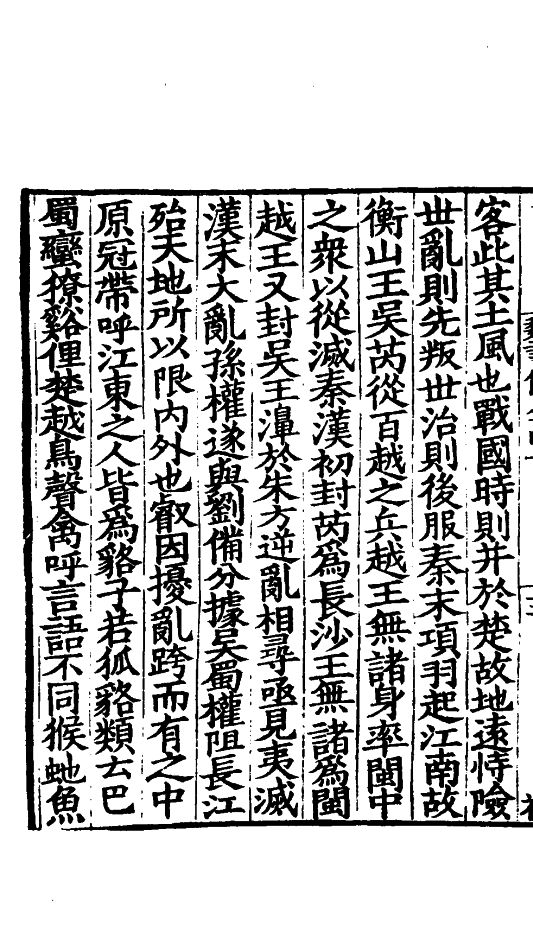 客此其土風也戰國時則并於楚故地遠恃險
世亂則先叛世治則後服秦末項羽起江南故
衡山王吳芮從百越之兵越王無諸身率閩中
之衆以從滅秦漢初封芮為長沙王無諸為閩
越王又封吳王濞於朱方逆亂相尋亟見夷滅
漢末大亂孫權遂與劉備分據吳蜀權阻長江
殆天地所以限內外也叡因擾亂跨而有之中
原冠帶呼江東之人皆為貉子若狐貉類云巴
蜀蠻獠谿俚楚越鳥聲禽呼言語不同猴虵魚